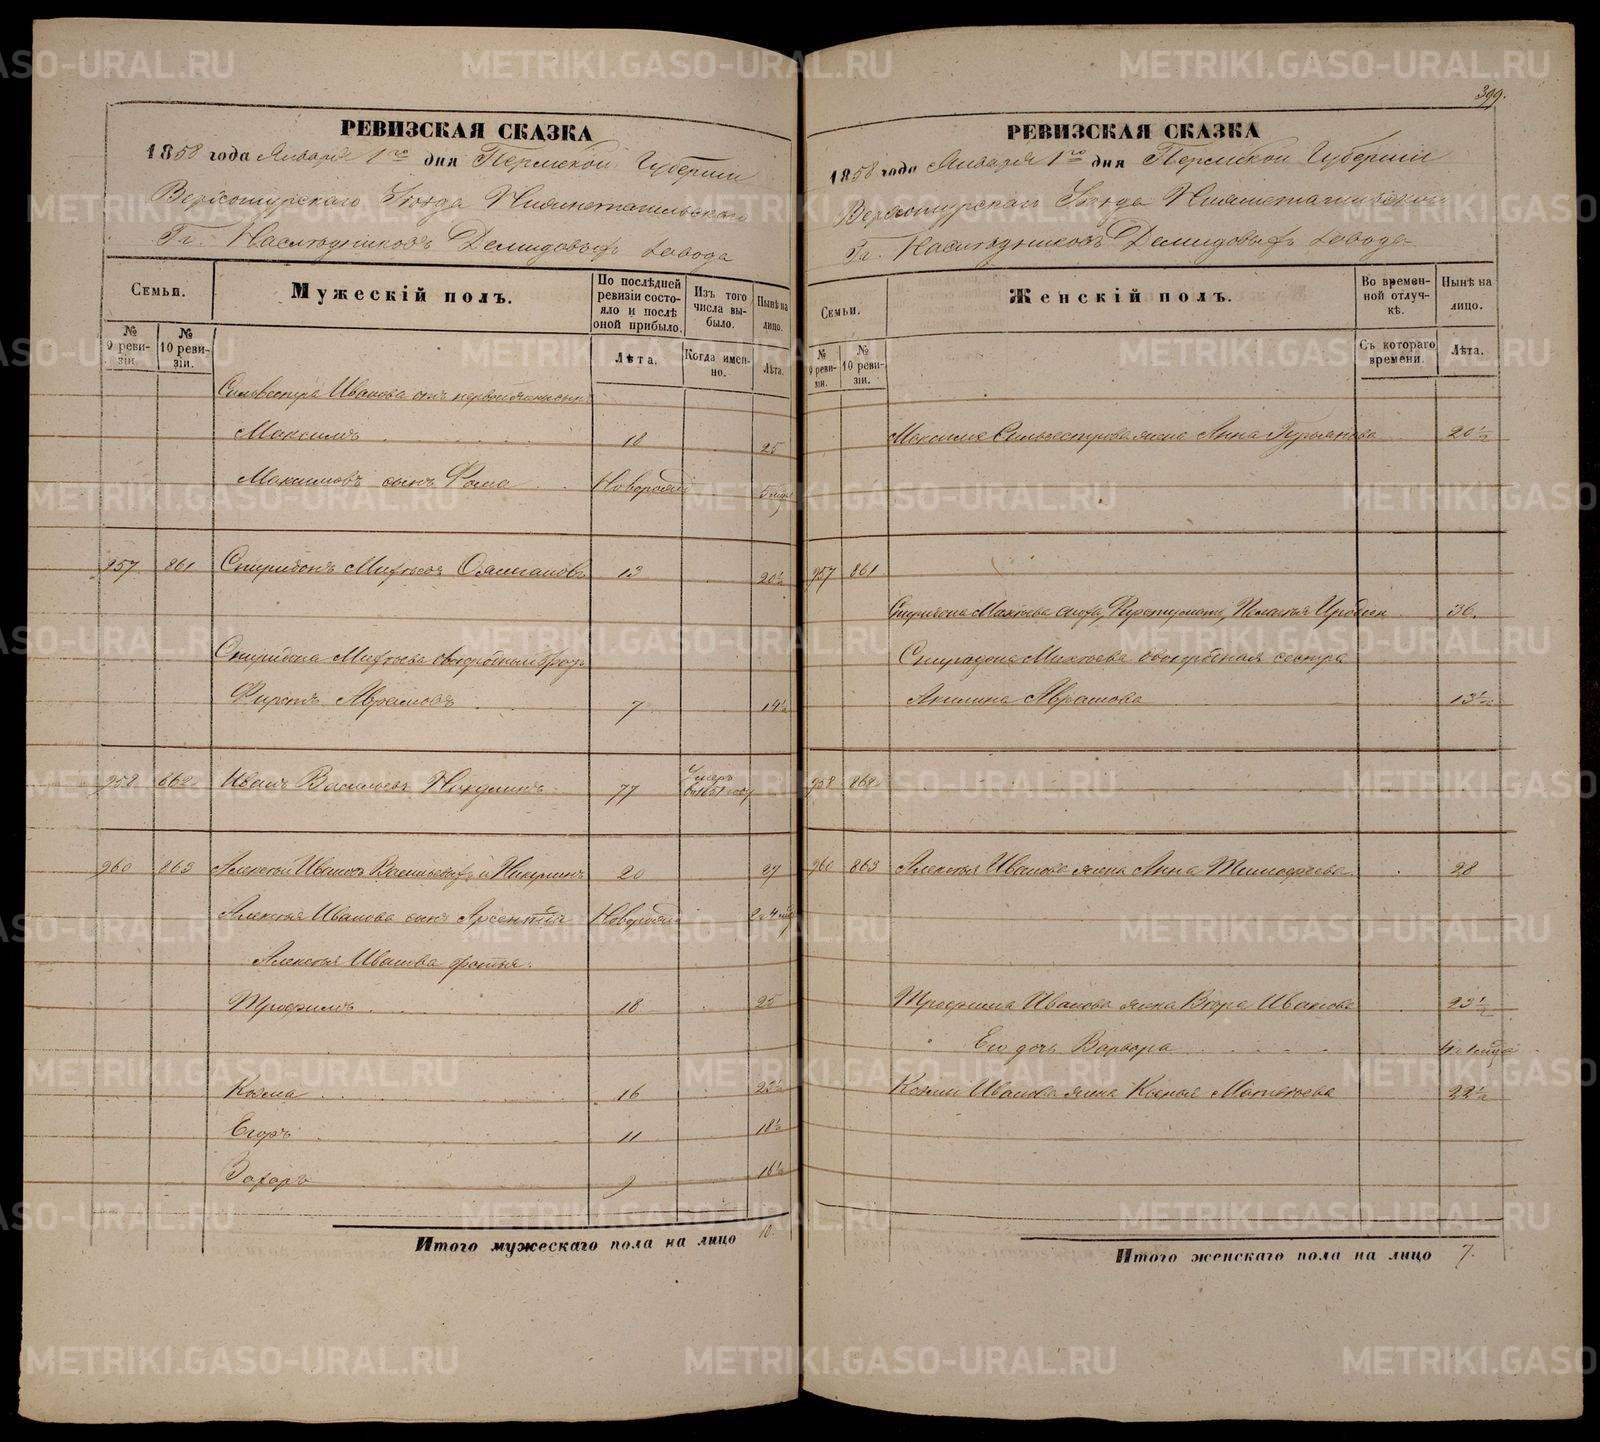 РЕВИЗСКАЯ СКАЗКА
1858 года Января 1го дня Пермской Губернии
Верхотурского Уѣзда Нижнетагильского
Гг. Наслѣдниковъ Демидовыхъ завода
Семьи.
Мужескій полъ.
По послѣдней ревизіи состояло и послѣ оной прибыло.
Изъ того числа выбыло.
Нынѣ на лицо.
№ 9 ревизіи.
№ 10 ревизіи.
Лѣта.
Когда именно.
Лѣта.
Сильвестра Иванова отъ первой жены сынъ
Максимъ 18 25
Максимовъ сынъ Фома Новорожд 5
957 861 Спиридонъ Михѣевъ 13 20½
Спиридона Михѣева двоюродный братъ
Фирсъ Аврамовъ 7 14½
958 862 Иванъ Васильевъ Никулинъ 77 Умеръ
960 863 Алексѣй Ивановъ Васильевъ и Никулинъ 20 27
Алексѣя Иванова сынъ Арсентій Новорожд
Алексѣя Иванова братья:
Трофимъ 18 25
Козма 16 23½
Егоръ 11 18½
Захаръ 9 16½
Итого мужескаго пола на лицо 10.
399.
РЕВИЗСКАЯ СКАЗКА
1858 года Января 1го дня Пермской Губерніи
Верхотурского Уѣзда Нижнетагильского
Гг. Наслѣдниковъ Демидовыхъ завода
Семьи.
Женскій полъ.
Во временной отлучкѣ.
Нынѣ на лицо.
№ 9 ревизіи.
№ 10 ревизіи.
Съ котораго времени.
Лѣта.
Максима Сильвестрова жена Анна 20½
957 861
Спиридона Михѣева 36.
Спиридона Михѣева двоюродная сестра
Акилина Аврамова 13½
958 862
960 863 Алексѣя Иванова жена Анна Тимофѣева 28
Трофима Иванова жена Вѣра Иванова 23½
Его дочь Варвара
Козмы Иванова жена Ксенья Матвѣева 22½
Итого женскаго пола на лицо 7.
METRIKI.GASO-URAL.RU